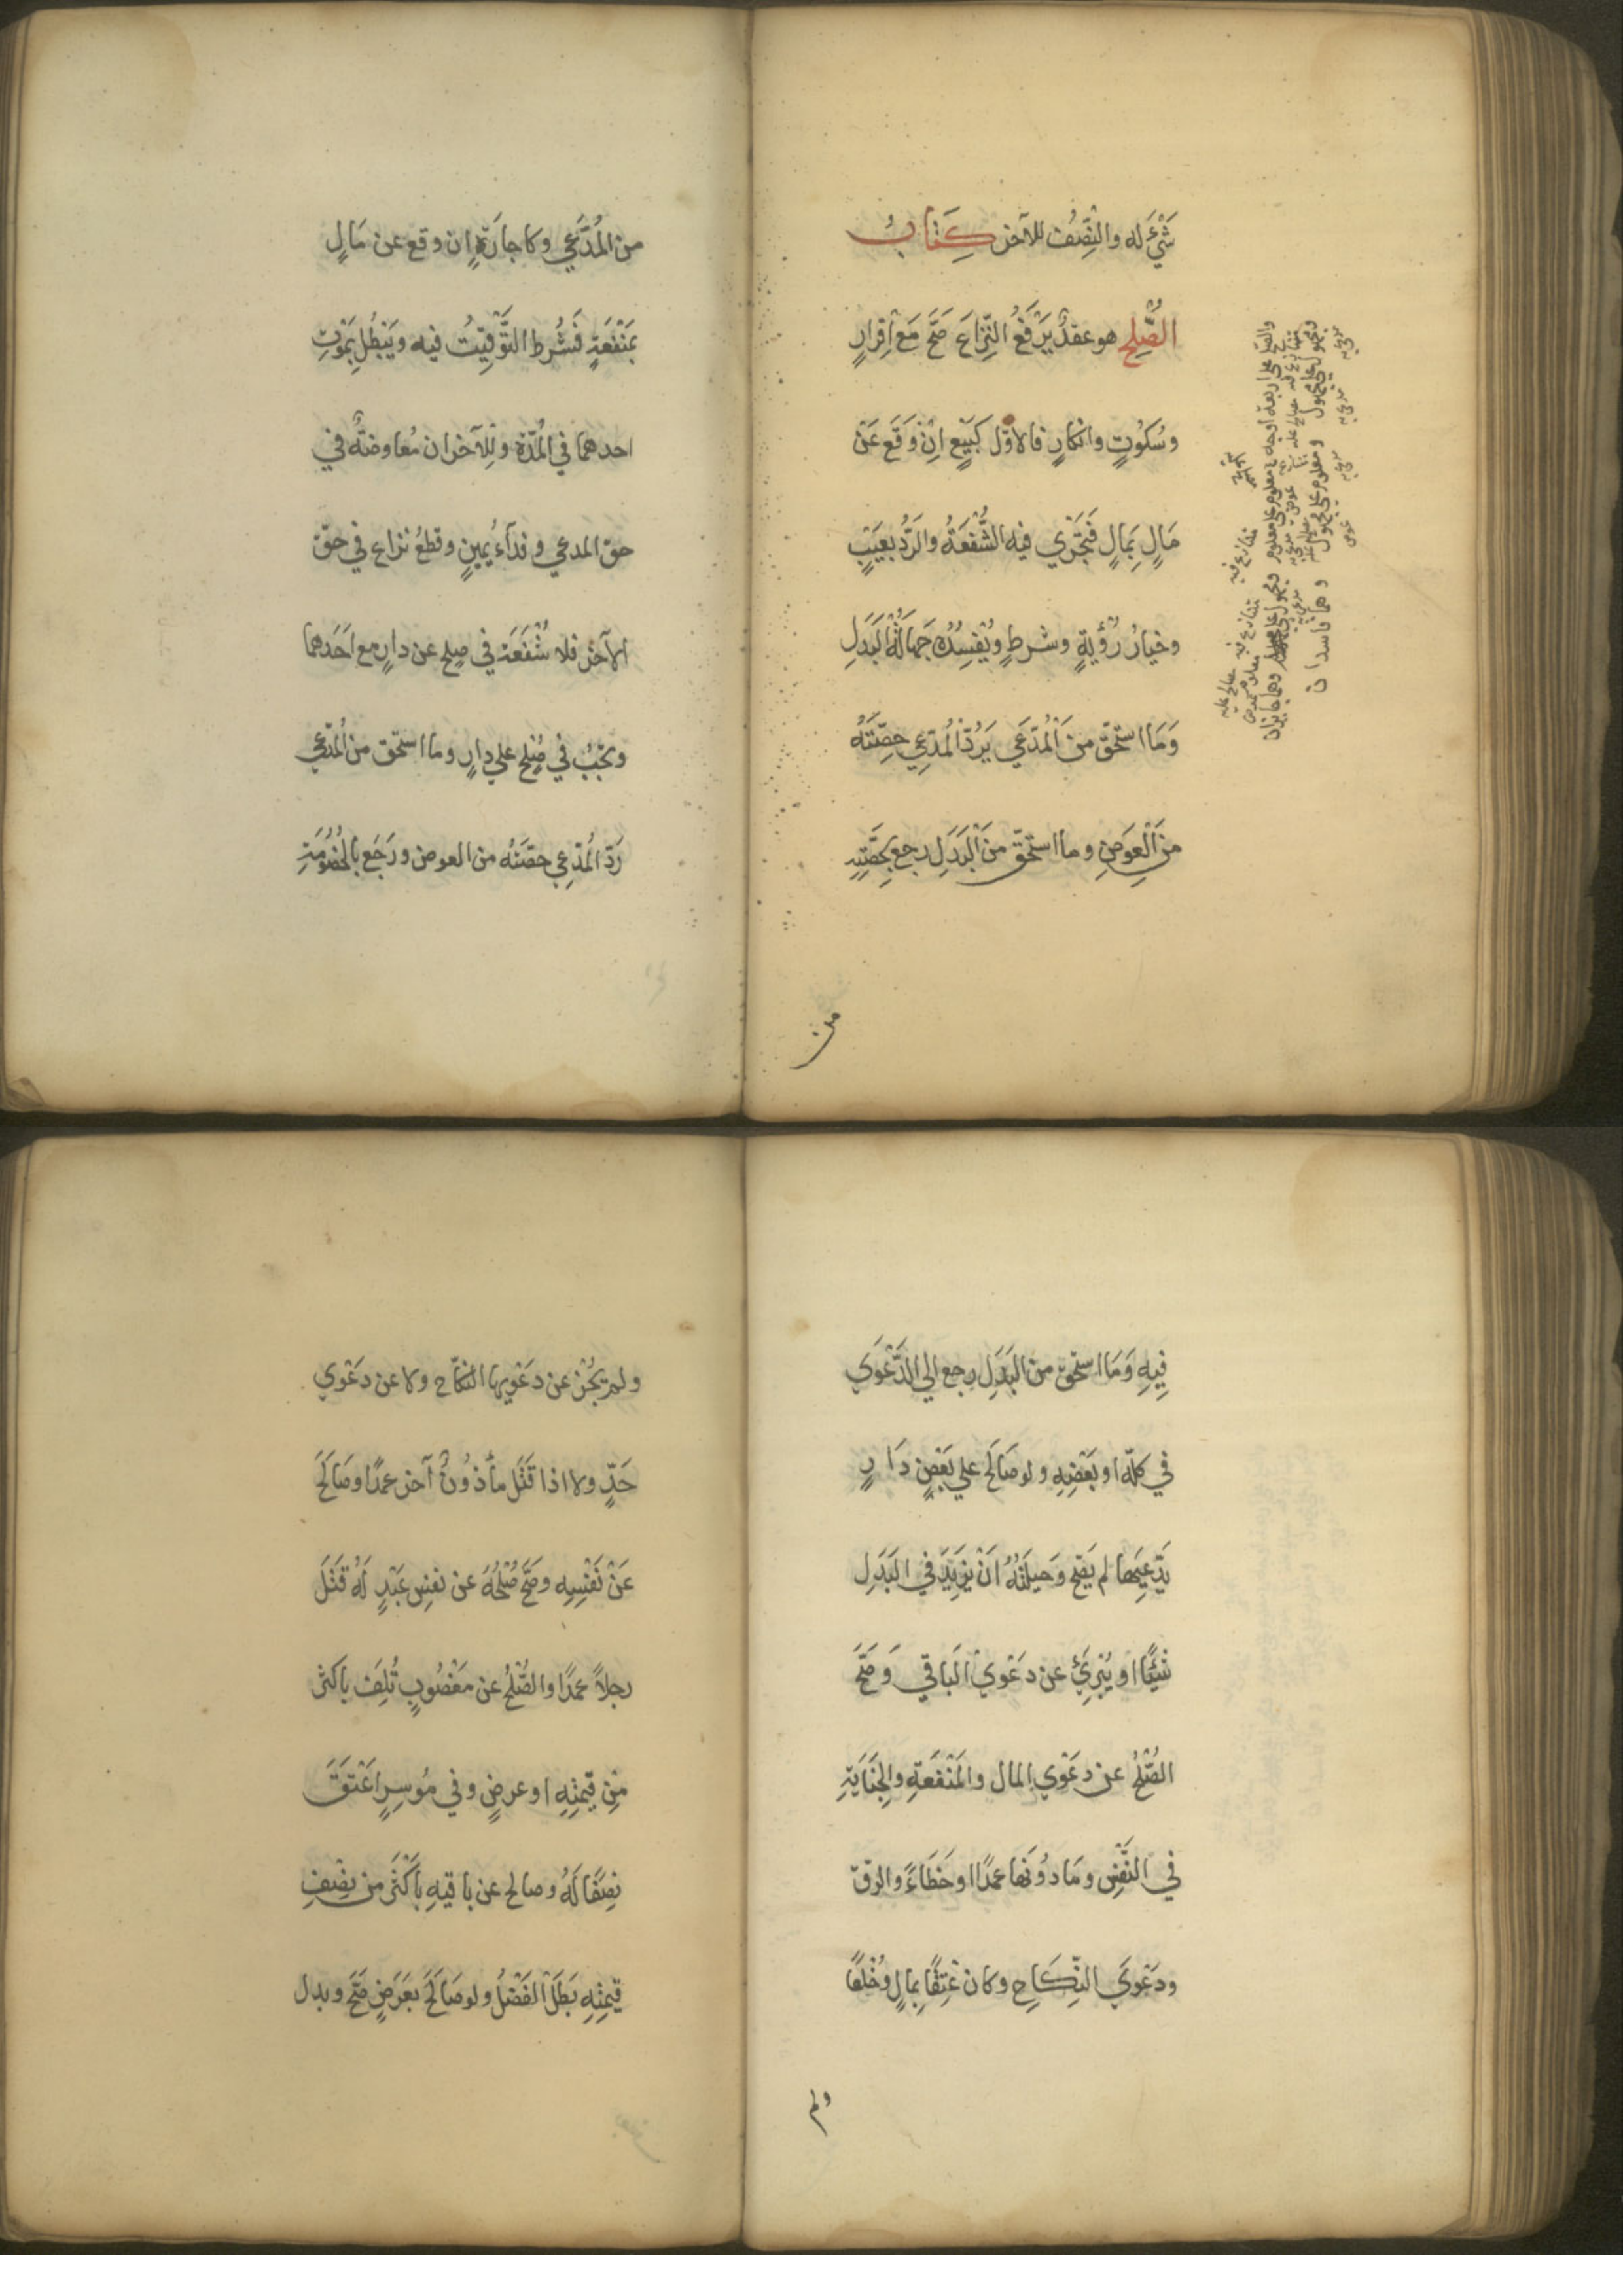 شَيْءٌ له والنِّصْفُ للآخر كِتَابُ
الصُّلْحِ هو عقدٌ يَرْفَعُ النِّزَاعَ صَحَّ مَعَ اِقرارٍ
وسُكُوتٍ وانكارٍ فالاوّل كَبَيْعٍ اِنْ وَقَعَ عَنْ
مَالٍ بِمَالٍ فَتَجْرِي فيه الشُّفْعَةُ والرَّدُّ بِعَيْبٍ
وخيارُ رُؤيةٍ وشرطٍ ويُفْسِدُه جَهَالَةُ البَدَلِ
وَمَا استُحِقَّ مِنَ المُدَّعَي يَرُدُّ المُدَّعِي حِصَّتَهُ
مِنَ العِوَضِ وما استُحِقَّ مِنَ البَدَلِ رجع بِحِصَّتِهِ
من
والصلح علي اربعة اوجه معلوم علي معلوم
وهما جايزان
ومجهول علي مجهول ومعلوم علي مجهول وهما فاسدان
من المُدَّعَي وكاجارَةٍ اِن وقع عن مَالٍ
بِمَنْفَعَةٍ فَشُرِط التَّوْقِيتُ فيه ويَبْطُل بِمَوْتِ
احدهما في المُدّة وللآخران مُعَاوضَةٌ في
حق المدعي وفدآءُ يمينٍ وقطعُ نزاع في حق
الآخر فلا شُفْعَة في صلح عن دارٍ مع اَحَدِهما
وتجبُ في صُلْح علي دارٍ وما استُحق من المُدّعي
رَدّ المُدّعِي حصّتَهُ من العوض ورَجَع بالخُصُومَةِ
فِيهِ وَمَا استُحق من البَدَلِ رجع الي الدَّعْوَي
في كلّه او بَعْضِهِ ولو صَالَحَ علي بَعْضِ دَارٍ
يَدَّعِيهَا لم يَصِحّ وَحيلَتُهُ اَنْ يَزِيدَ في البَدَلِ
شَيْئًا او يُبْرِئَ عن دَعْوَي البَاقي وَصَحَّ
الصُّلْحُ عن دعْوَي المال والمَنْفَعَةِ والجِنَايَةِ
في النَّفْسِ ومَا دُونَهَا عمدًا او خَطَاءً والرقّ
ودَعْوَي النِّكَاحِ وكان عِتْقًا بِمَالٍ وخُلْعًا
ولم
ولم يَجُزْ عن دَعْوِيها النكاح ولا عن دَعْوَي
حَدٍّ ولا اذا قَتَل مأذُونٌ آخر عمدًا وصَالَحَ
عَنْ نَفْسِهِ وصَحَّ صُلْحُهُ عن نفس عَبْدٍ لَهُ قَتَلَ
رجلاً عمدًا والصُّلْحُ عن مَغْصُوبٍ تُلِفَ باكثر
مِن قِيمَتِهِ او عرضٍ وفي مُوسِرٍ اَعْتَقَ
نِصْفًا لَهُ وصالح عن باقيهِ بِاَكْثَر من نِصْفِ
قِيمَتِهِ بَطَلَ الفَضْلُ ولو صَالَحَ بِعَرَضٍ صَحَّ وبدل